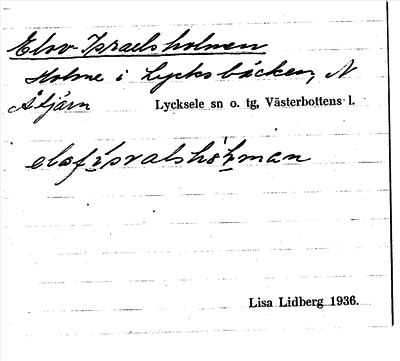 Elov-Israelsholmen
Holme i Lycksbäcken, N
Åtjärn Lycksele sn o. tg, Västerbottens l.
Lisa Lidberg 1936.